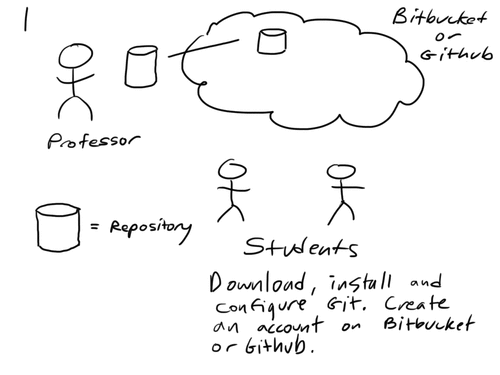 1
Bitbucket
or
Github
Professor
= Repository
Students
Download, install and
configure Git. Create
an account on Bitbucket
or Github.